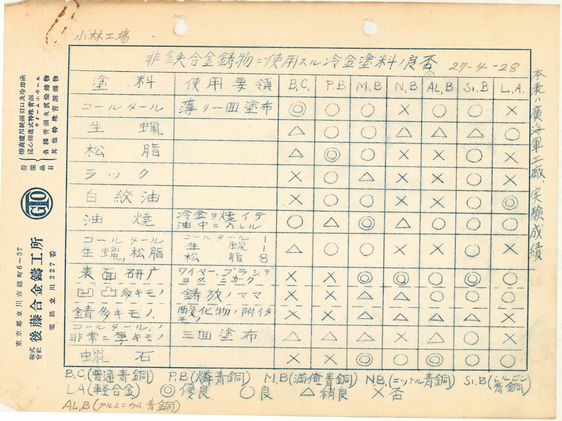 小林工場
非鉄合金鋳物ニ使用スル冷金塗料ノ良否 27-4-28
塗料 使用要領 B.C. P.B M.B N.B AL.B Si.B L.A.
コールタール 薄リ一面塗布 ◎ ○ ○ × × ○ ×
生蠟 △ ○ ○ △ △ △ ○
松脂 △ ◎ ○ × × ○ ○
ラック × × △ × × △ ×
白絞油 × × × × ○ ○ ◎
油焼 冷金ヲ焼イテ油中ニヘレル ○ △ ◎ △ ○ ○ ○
コールタール 生蠟,松脂 コールタール 1 生蠟 1 松脂 8 △ ○ ○ × × ○ ×
表面研广 ワイヤー、ブラシデヨク、ミガク × × ◎ ◎ ○ ◎ ○
凹凸多キモノ 鋳放ノママ × × △ △ ○ ○ ○
錆多キモノ 酸化物ノ附イタモノ × × × △ △ ○ ○
コールタール,ノ非常ニ厚キモノ 三面塗布 △ △ △ × △ △ ×
蠟石 × △ ◎ △ ◎ ○ ○
B.C(普通青銅) P.B(燐青銅) M.B(満俺青銅) N.B(ニッケル青銅) Si.B(シルジン青銅)
L.A(軽合金) ◎優良 ○良 △稍良 ×否
AL.B(アルミニウム青銅)
本表ハ廣海軍工廠実験成績
営業品目
各種青銅及軽鋳物
其他特殊青銅鋳物
GTO
株式会社 後藤合金鑄工所
東京都立川市錦町6〜37
電話立川227番